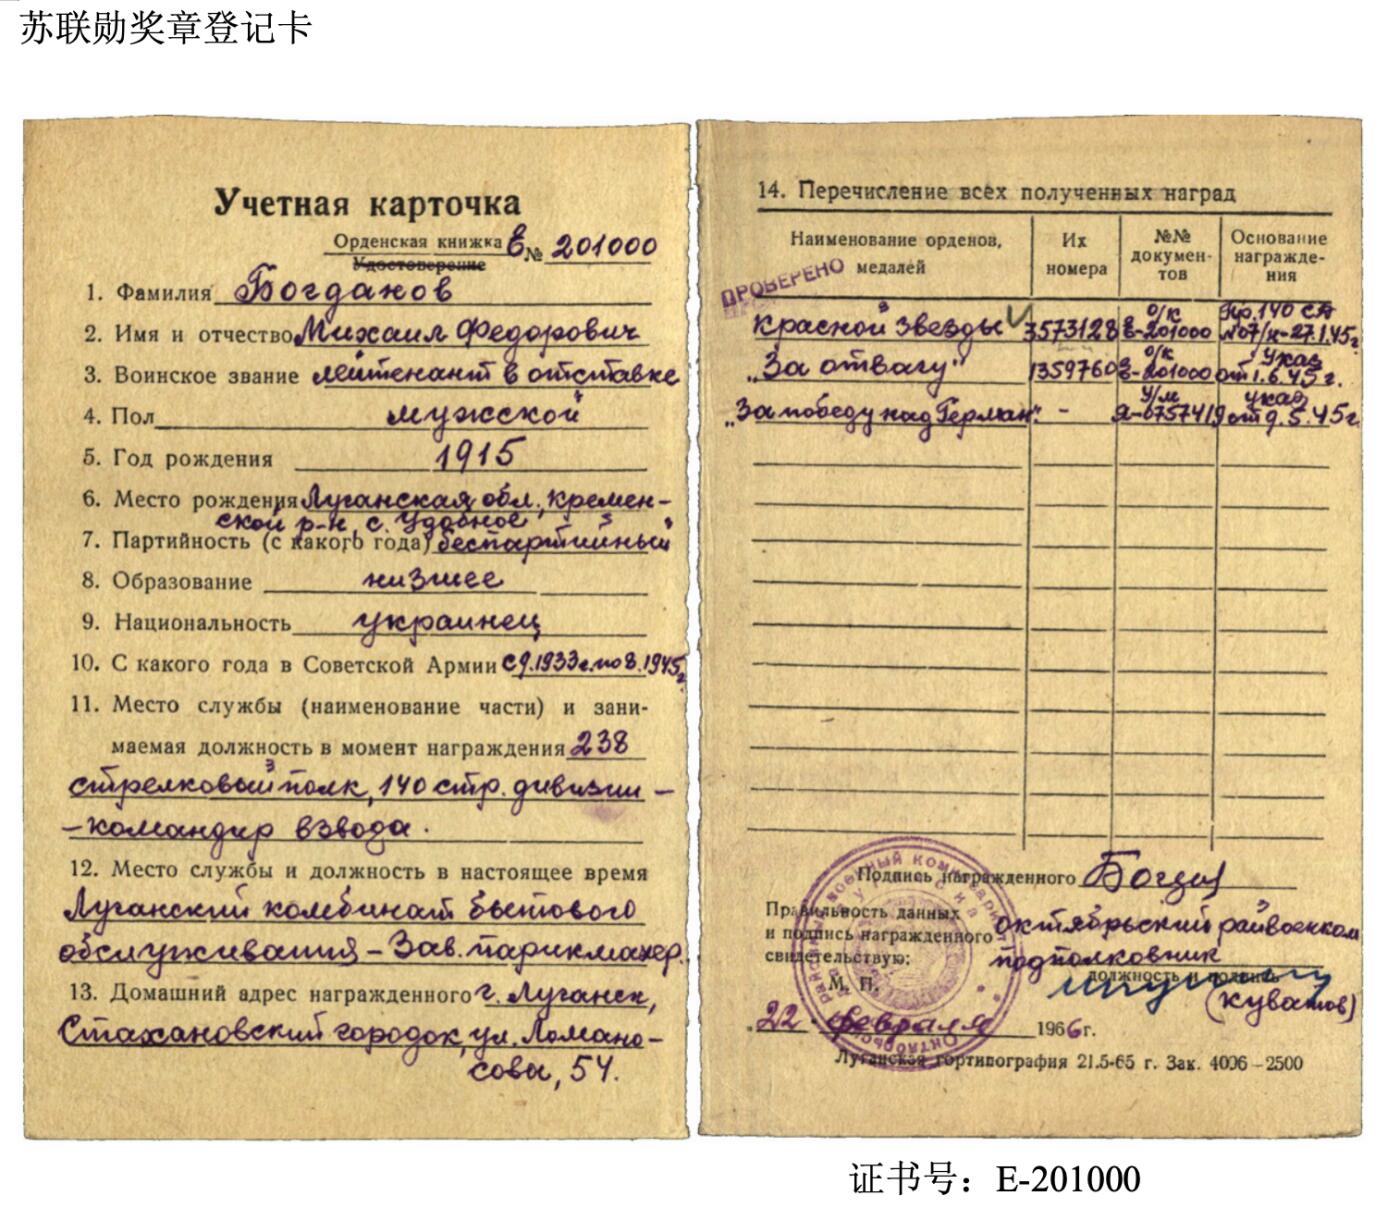 苏联勋奖章登记卡
Учетная карточка
Орденская книжка Е № 201000
Удостоверение
1. Фамилия Богданов
2. Имя и отчество Михаил Федорович
3. Воинское звание лейтенант в отставке
4. Пол мужской
5. Год рождения 1915
6. Место рождения Луганская обл., Кремен-
ской р-н, с. Удобное
7. Партийность (с какого года) беспартийный
8. Образование низшее
9. Национальность украинец
10. С какого года в Советской Армии с 9.1933г. по 8.1945г.
11. Место службы (наименование части) и зани-
маемая должность в момент награждения 238
стрелковый полк, 140 стр. дивизии –
– командир взвода.
12. Место службы и должность в настоящее время
Луганский комбинат бытового
обслуживания – Зав. парикмахер.
13. Домашний адрес награжденного г. Луганск,
Стахановский городок, ул. Ломоно-
сова, 54.
14. Перечисление всех полученных наград
Наименование орденов, медалей
Их номера
№№ документов
Основание награждения
ПРОВЕРЕНО
Красной Звезды 3573128 о/к Е-201000 Пр. 140 СД №07/н-27.1.45г.
„За отвагу" 1359760 о/к Е-201000 Указ от 1.6.45г.
„За победу над Герман." - У/м Я-0757419 указ от 9.5.45г.
Подпись награжденного
Правильность данных
и подпись награжденного
свидетельствую:
Октябрьский райвоенком
подполковник
должность и подпись
М. П.
(Куватов)
"22" февраля 1966г.
Луганская гортипография 21.5-65 г. Зак. 4006–2500
证书号：E-201000